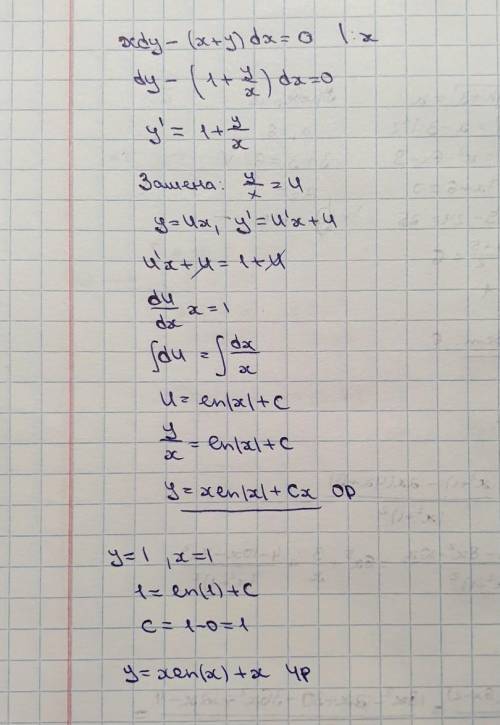 xdy − (x+y)dx = 0 |:x
dy − (1 + y/x) dx = 0
y' = 1 + y/x
Замена: y/x = u
y = ux, y' = u'x + u
u'x + u = 1 + u
du/dx x = 1
∫du = ∫dx/x
u = ln|x| + c
y/x = ln|x| + c
y = xln|x| + Cx ОР
y = 1, x = 1
1 = ln(1) + c
c = 1 − 0 = 1
y = xln(x) + x ЧР